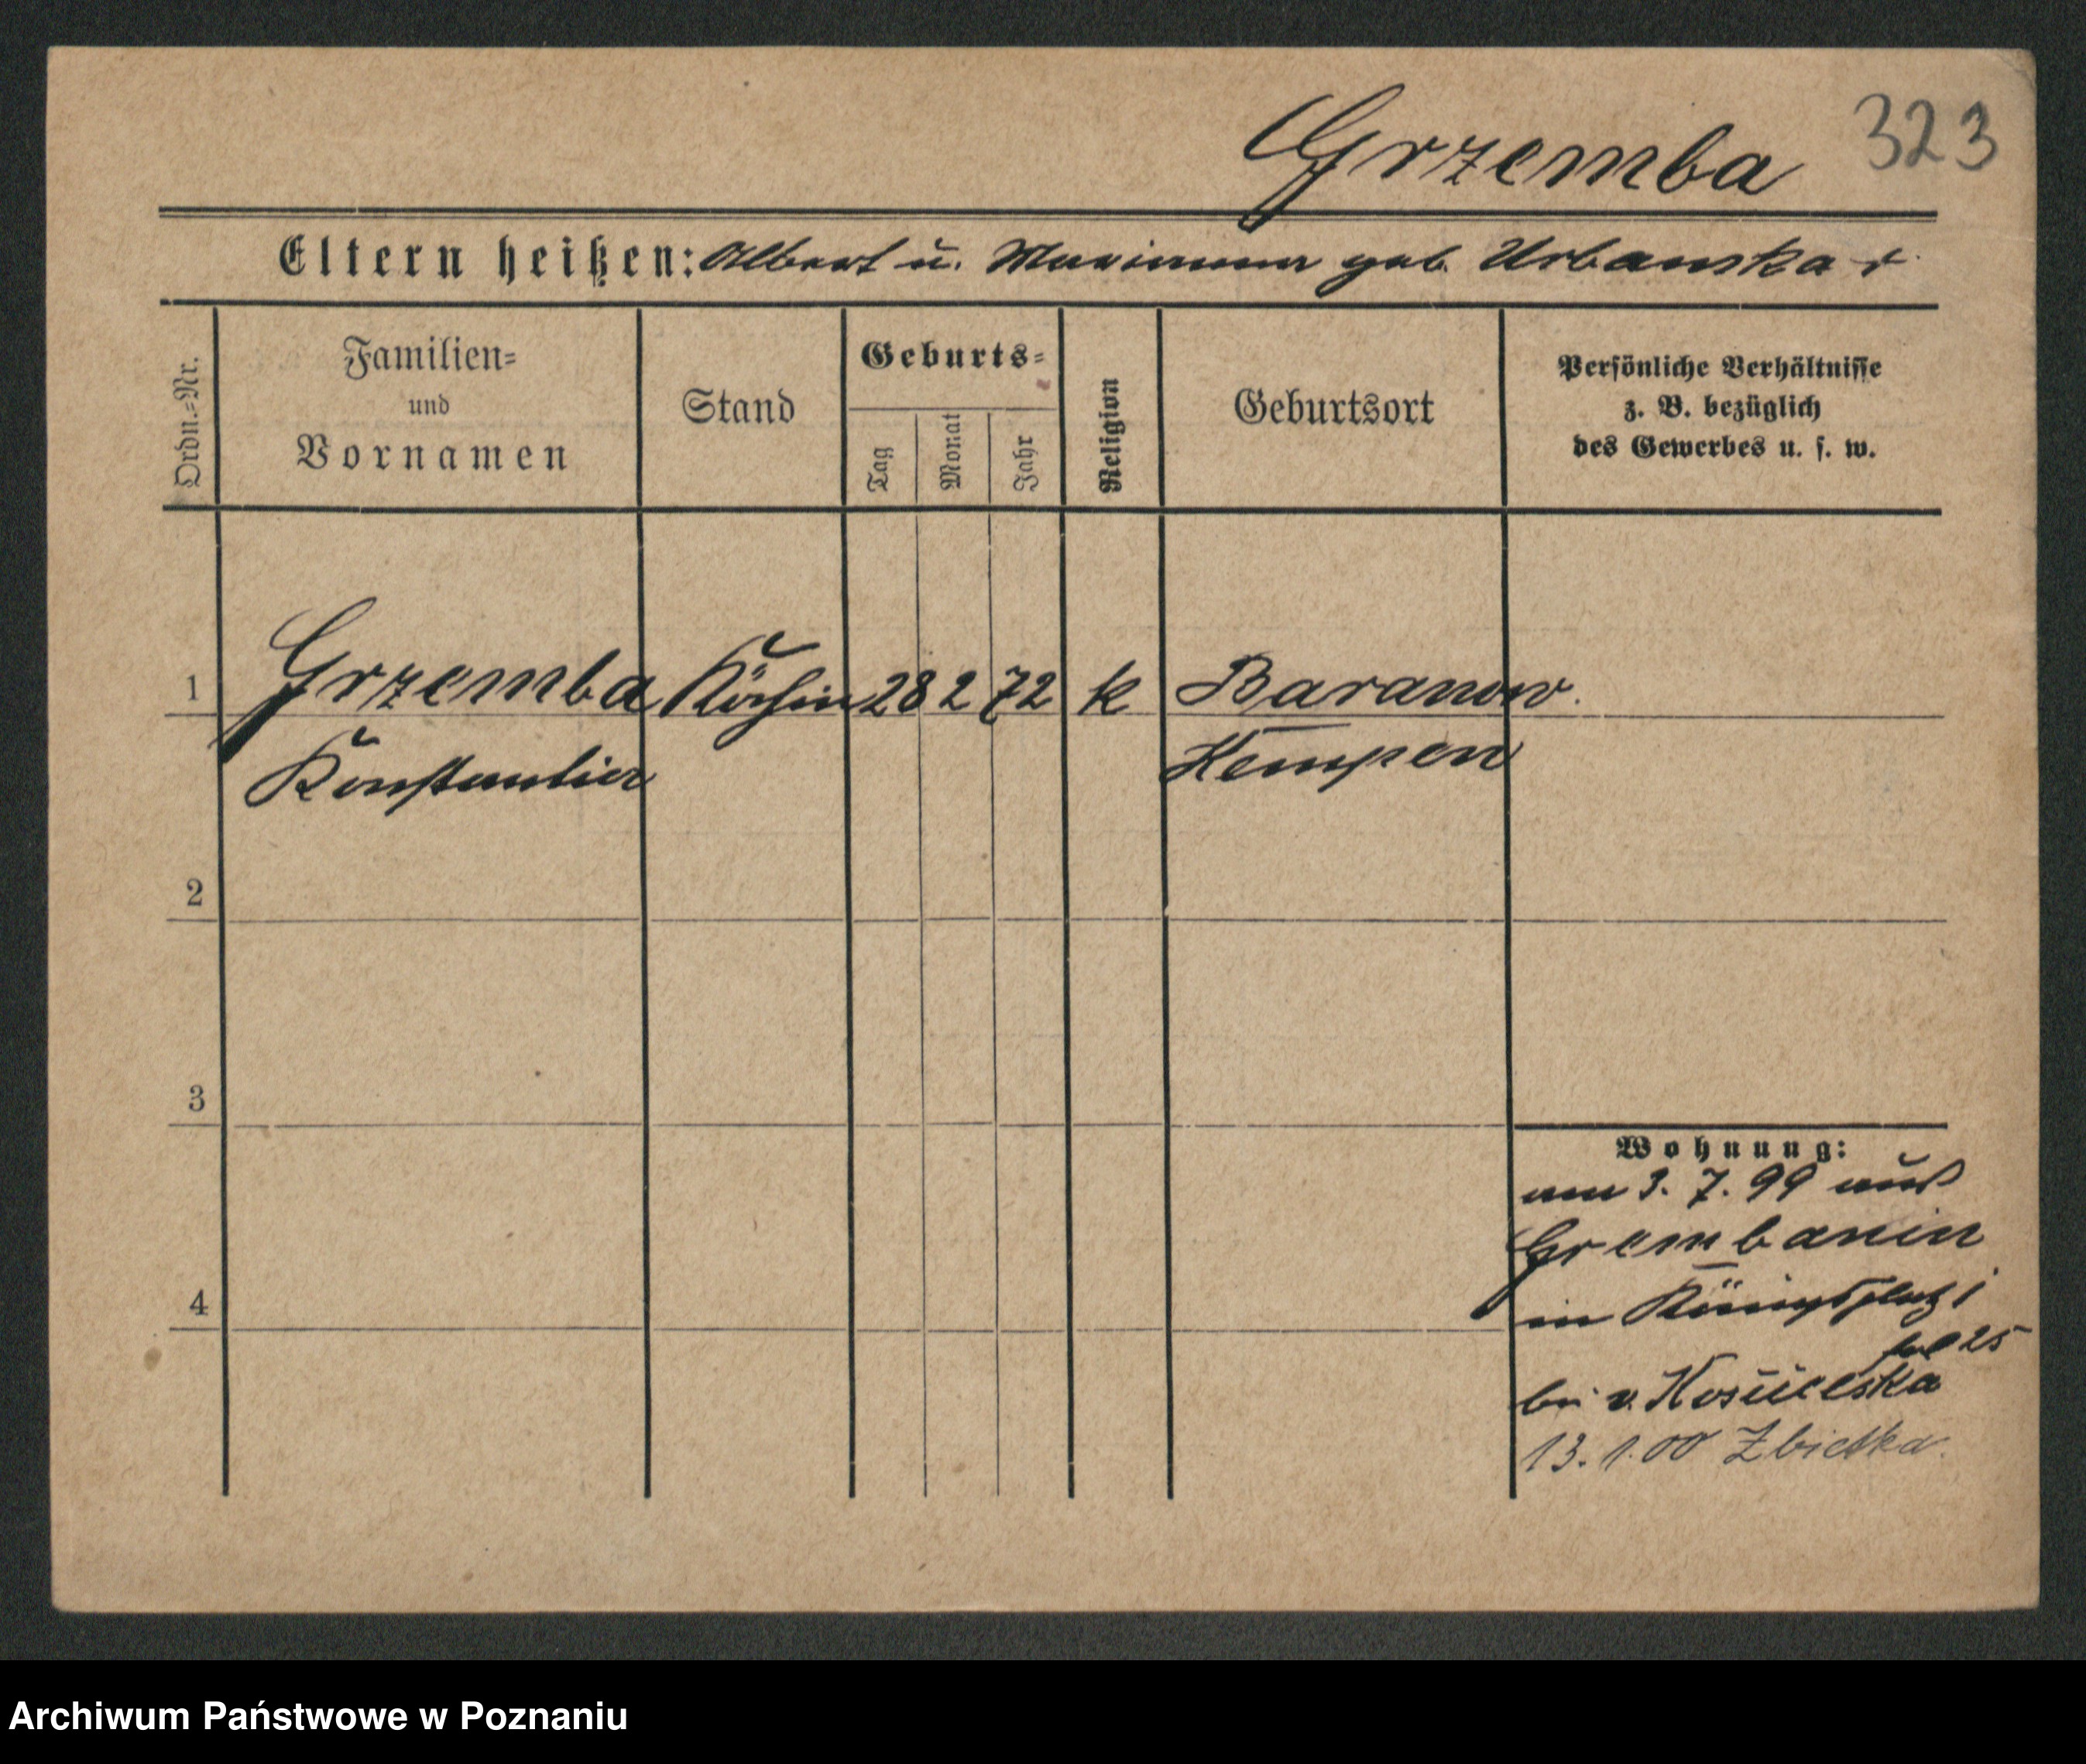 Grzemba 323
Eltern heißen: Albert u. Marianna geb. Urbanska
Ordn.=Nr.
Familien=
und
Vornamen
Stand
Geburts=
Tag
Monat
Jahr
Religion
Geburtsort
Persönliche Verhältnisse
z. B. bezüglich
des Gewerbes u. s. w.
1 Grzemba Köchin 28 2 72 k Baranow.
Konstantia Kempen
2
3
4
Wohnung:
am 3. 7. 99 aus
Grembanin
in Königsplatz 1
25
bei v.
13. 1. 00 Zbietka.
Archiwum Państwowe w Poznaniu